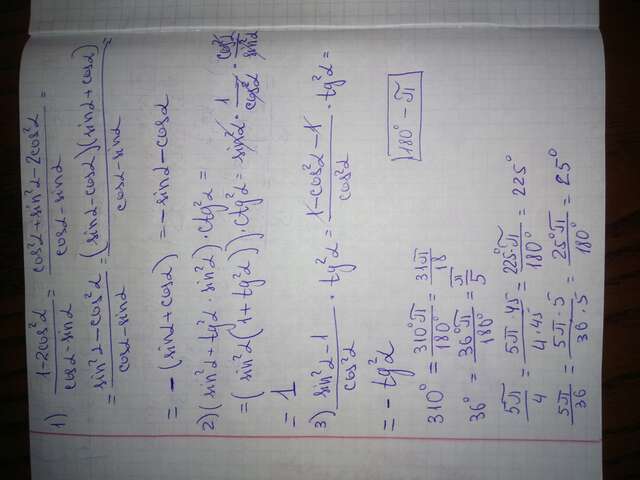 1) (1-2cos²α)/(cosα-sinα) = (cos²α+sin²α-2cos²α)/(cosα-sinα) =
= (sin²α-cos²α)/(cosα-sinα) = ((sinα-cosα)(sinα+cosα))/(cosα-sinα) =
= -(sinα+cosα) = -sinα-cosα
2) (sin²α+tg²α·sin²α)·ctg²α =
= (sin²α(1+tg²α))·ctg²α = sin²α · 1/cos²α · cos²α/sin²α
= 1
3) (sin²α-1)/cos²α · tg²α = (1-cos²α-1)/cos²α · tg²α =
= -tg²α
310° = 310°π/180° = 31π/18
36° = 36°π/180° = π/5
180° - π
5π/4 = 5π·45/4·45 = 225°π/180° = 225°
5π/36 = 5π·5/36·5 = 25°π/180° = 25°